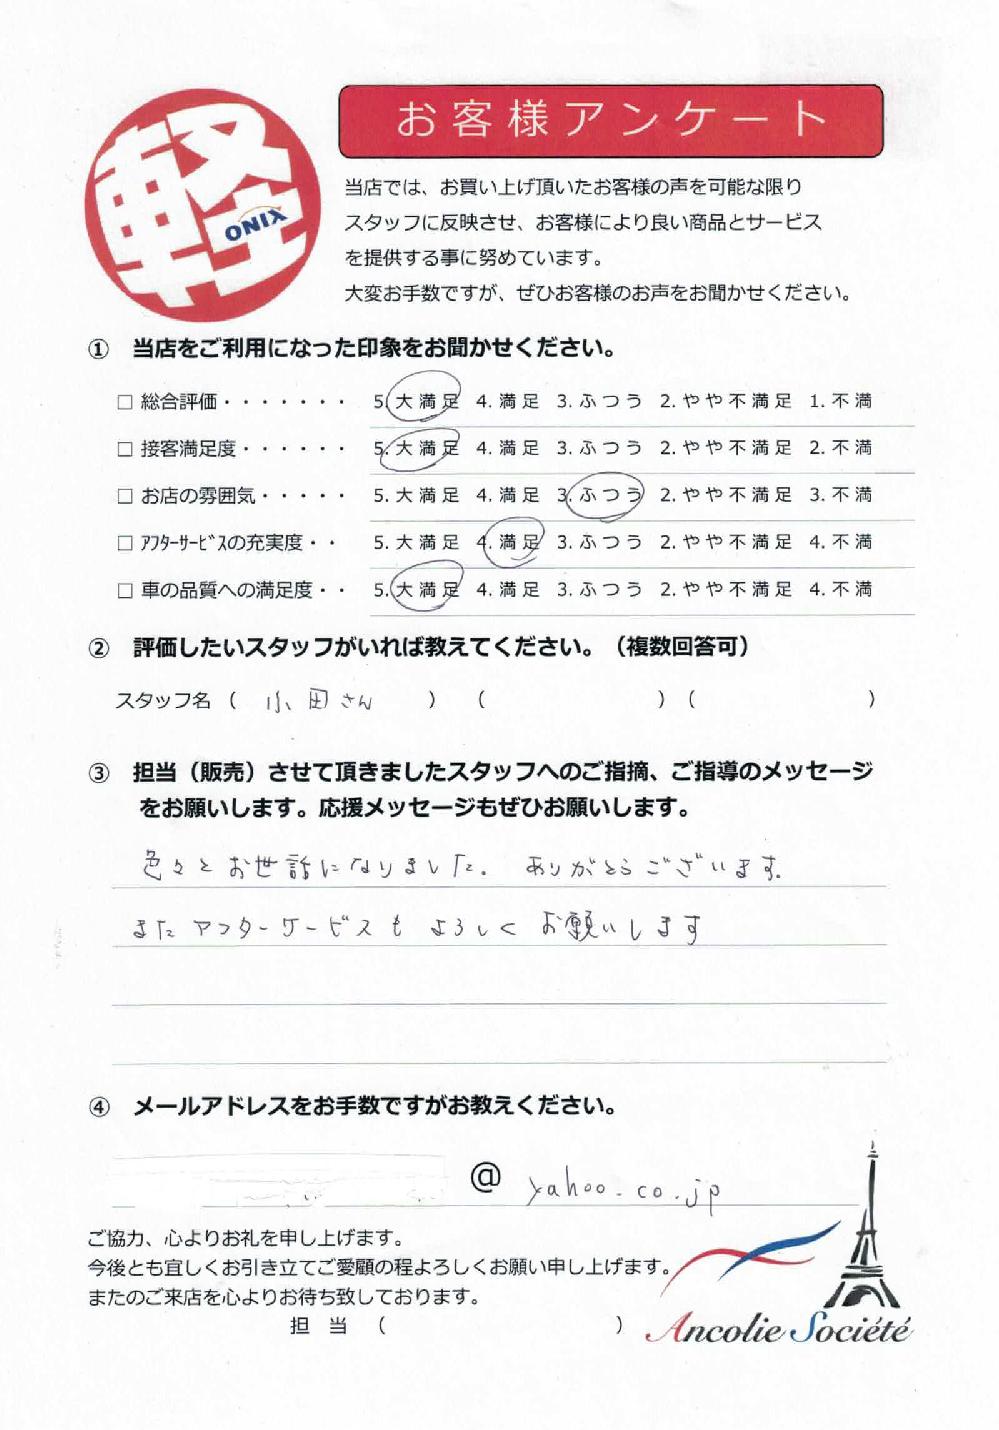 軽
ONIX
お客様アンケート
当店では、お買い上げ頂いたお客様の声を可能な限り
スタッフに反映させ、お客様により良い商品とサービス
を提供する事に努めています。
大変お手数ですが、ぜひお客様のお声をお聞かせください。
① 当店をご利用になった印象をお聞かせください。
□ 総合評価・・・・・・・ 5.大満足 4.満足 3.ふつう 2.やや不満足 1.不満
□ 接客満足度・・・・・・ 5.大満足 4.満足 3.ふつう 2.やや不満足 2.不満
□ お店の雰囲気・・・・・ 5.大満足 4.満足 3.ふつう 2.やや不満足 3.不満
□ ｱﾌﾀｰｻｰﾋﾞｽの充実度・・ 5.大満足 4.満足 3.ふつう 2.やや不満足 4.不満
□ 車の品質への満足度・・ 5.大満足 4.満足 3.ふつう 2.やや不満足 4.不満
② 評価したいスタッフがいれば教えてください。（複数回答可）
スタッフ名（ 小田さん ） （ ）（ ）
③ 担当（販売）させて頂きましたスタッフへのご指摘、ご指導のメッセージ
をお願いします。応援メッセージもぜひお願いします。
色々とお世話になりました。ありがとうございます。
またアフターサービスもよろしくお願いします
④ メールアドレスをお手数ですがお教えください。
@ yahoo.co.jp
ご協力、心よりお礼を申し上げます。
今後とも宜しくお引き立てご愛顧の程よろしくお願い申し上げます。
またのご来店を心よりお待ち致しております。
担 当 （ ）
Ancolie Société